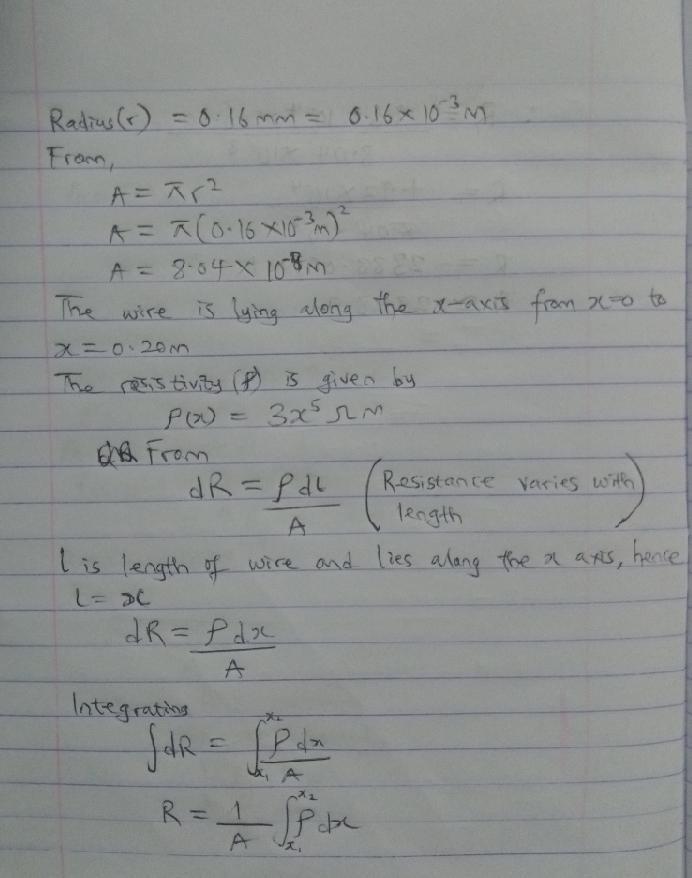 Radius(r) = 0.16 mm = 0.16 × 10⁻³ m
From,
A = πr²
A = π(0.16 × 10⁻³m)²
A = 8.04 × 10⁻⁸m
The wire is lying along the x-axis from x=0 to
x = 0.20m
The resistivity (ρ) is given by
ρ(x) = 3x⁵ Ωm
From
dR = ρdl/A (Resistance varies with length)
l is length of wire and lies along the x axis, hence
l = x
dR = ρdx/A
Integrating
∫dR = ∫ₓ₁ˣ² ρdx/A
R = 1/A ∫ₓ₁ˣ² ρdx